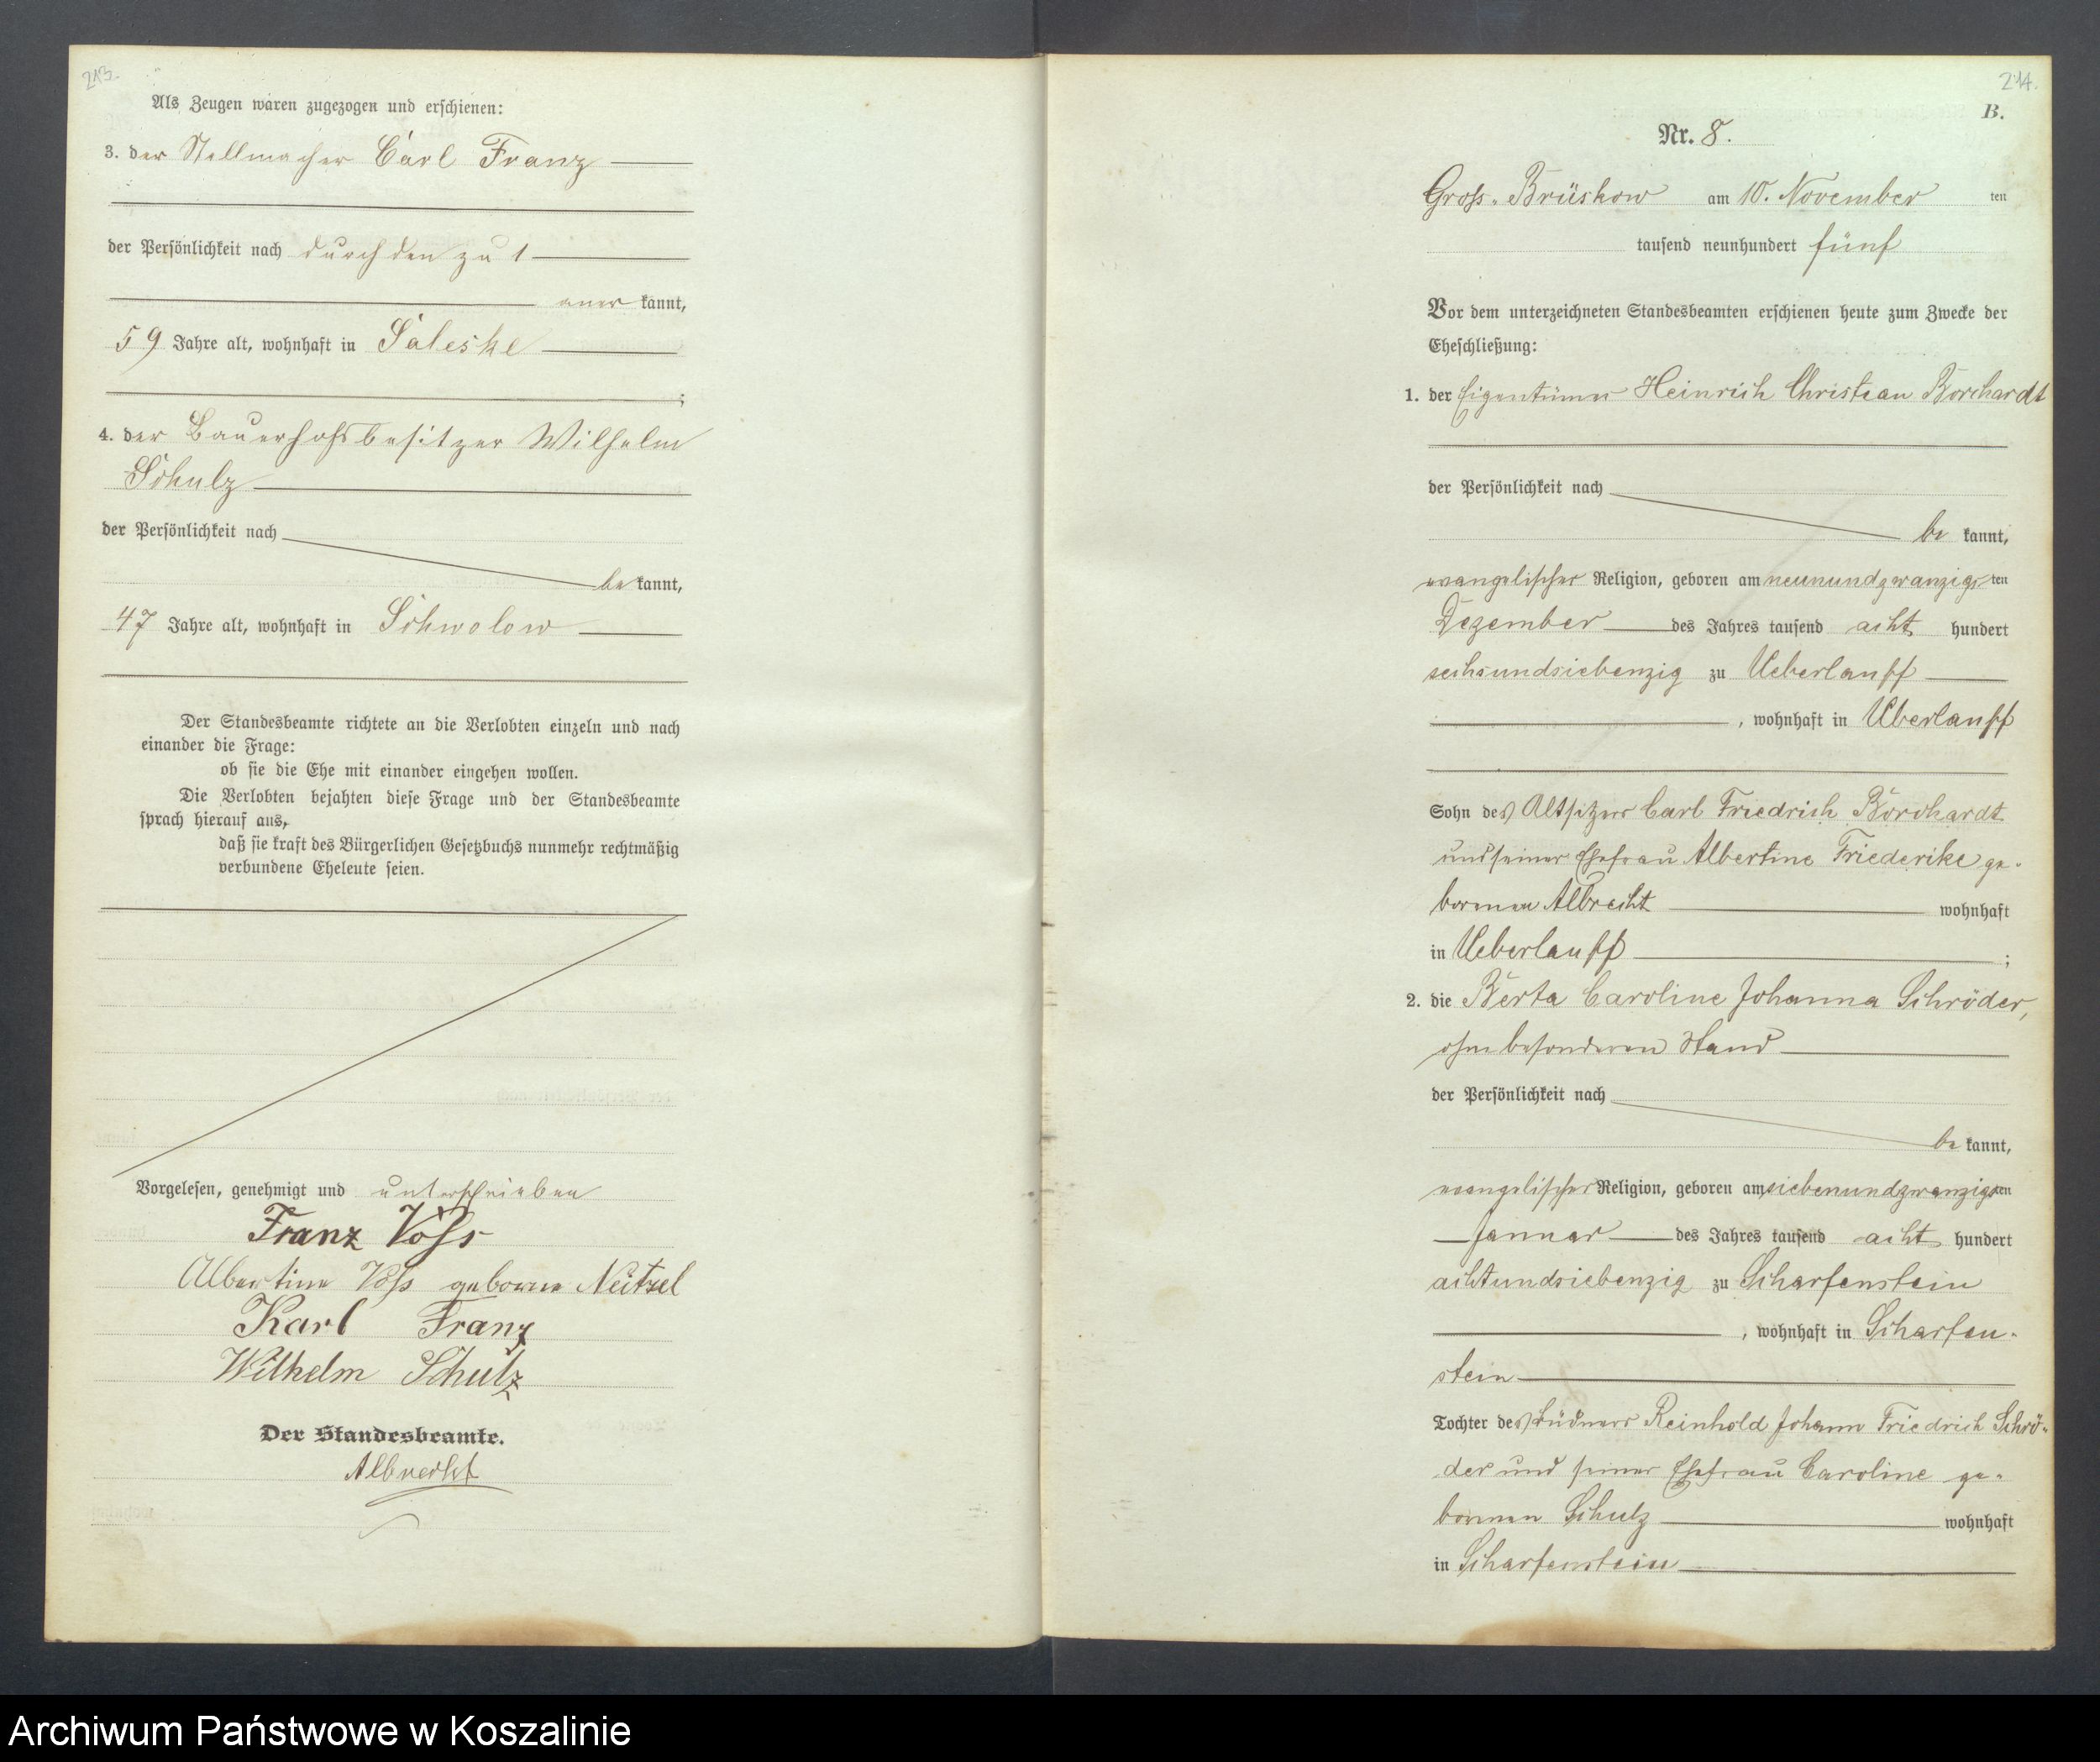 213.
Als Zeugen waren zugezogen und erschienen:
3. der Stellmacher Carl Franz
der Persönlichkeit nach durch den zu 1
aner kannt,
59 Jahre alt, wohnhaft in Saleske
;
4. der Bauerhofsbesitzer Wilhelm
Schulz
der Persönlichkeit nach
be kannt,
47 Jahre alt, wohnhaft in Schwolow
Der Standesbeamte richtete an die Verlobten einzeln und nach
einander die Frage:
ob sie die Ehe mit einander eingehen wollen.
Die Verlobten bejahten diese Frage und der Standesbeamte
sprach hierauf aus,
daß sie kraft des Bürgerlichen Gesetzbuchs nunmehr rechtmäßig
verbundene Eheleute seien.
Vorgelesen, genehmigt und unterschrieben
Franz Voß
Albertine Voß geborne Neitzel
Karl Franz
Wilhelm Schulz
Der Standesbeamte.
Albrecht
214.
B.
Nr. 8.
Gross-Brüskow am 10. November ten
tausend neunhundert fünf
Vor dem unterzeichneten Standesbeamten erschienen heute zum Zwecke der
Eheschließung:
1. der Eigentümer Heinrich Christian Borchardt
der Persönlichkeit nach
be kannt,
evangelischer Religion, geboren am neunundzwanzigs ten
Dezember des Jahres tausend acht hundert
sechsundsiebenzig zu Ueberlauff
, wohnhaft in Uberlauff
Sohn des Altsitzers Carl Friedrich Borchardt
und seiner Ehefrau Albertine Friederike ge-
bornen Albrecht wohnhaft
in Ueberlauff ;
2. die Berta Caroline Johanna Schröder,
ohne besonderen Stand
der Persönlichkeit nach
be kannt,
evangelischer Religion, geboren am siebenundzwanzigsten
Januar des Jahres tausend acht hundert
achtundsiebenzig zu Scharfenstein
, wohnhaft in Scharfen-
stein
Tochter des Büdners Reinhold Johann Friedrich Schrö-
der und seiner Ehefrau Caroline ge-
bornen Schulz wohnhaft
in Scharfenstein
Archiwum Państwowe w Koszalinie